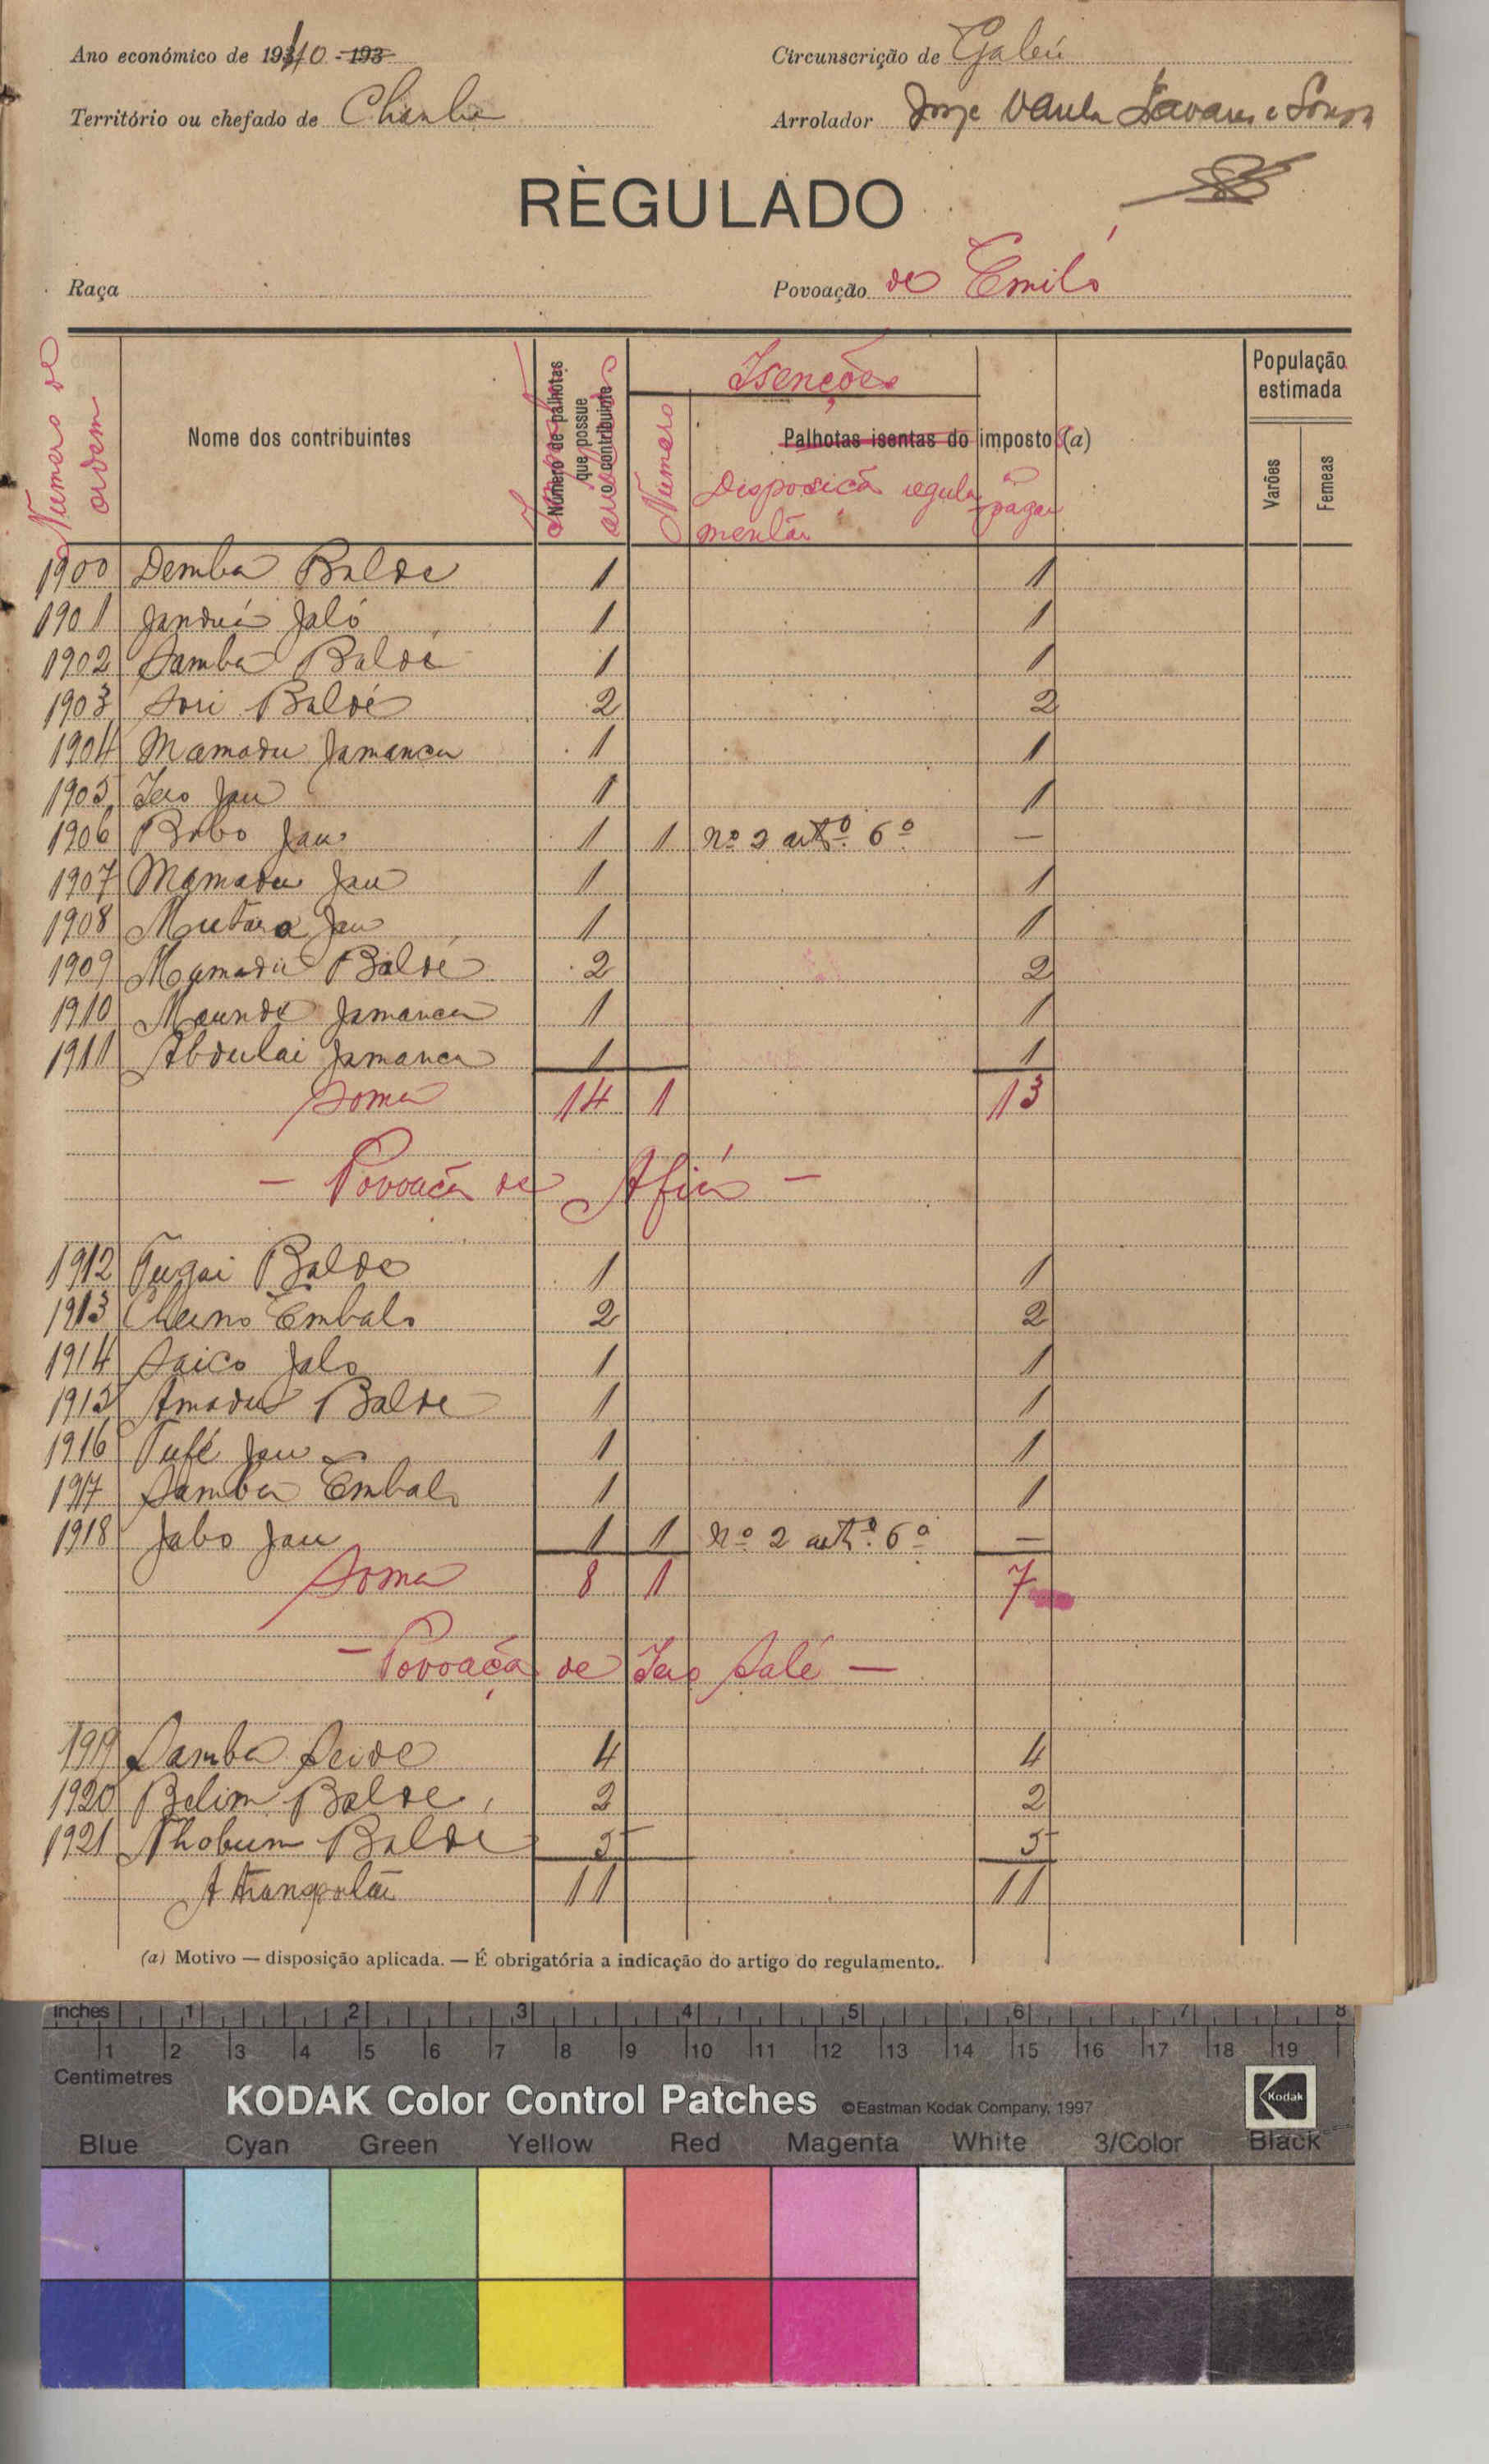 Ano económico de 1940 - 193
Circunscrição de Gabú
Território ou chefado de Chanha
Arrolador Jorge Tavares e Sousa
RÈGULADO
Raça
Povoação de Emiló
Numero de ordem
Nome dos contribuintes
Número de palhotas que possue o contribuinte
Isenções
Numero
Palhotas isentas do imposto (a)
Disposição regulamentar
a pagar
População estimada
Varões
Femeas
1900 Demba Balde 1 1
1901 Janduá Jaló 1 1
1902 Samba Baldé 1 1
1903 Sori Baldé 2 2
1904 Mamadu Jamanca 1 1
1905 Iero Jau 1 1
1906 Bobo Jau 1 1 nº 2 artº. 6º —
1907 Mamadu Jau 1 1
1908 Mutaro Jau 1 1
1909 Mamadú Baldé 2 2
1910 Maunde Jamanca 1 1
1911 Abdulai Jamanca 1 1
Soma 14 1 13
— Povoação de Afiá —
1912 Tugai Balde 1 1
1913 Cherno Embalo 2 2
1914 Saico Jalo 1 1
1915 Amadu Balde 1 1
1916 Tufé Jau 1 1
1917 Samba Embalo 1 1
1918 Jabo Jau 1 1 Nº 2 artº. 6º —
Soma 8 1 7
— Povoação de Iero Salé —
1919 Samba Seide 4 4
1920 Belim Balde 2 2
1921 Thobum Balde 5 5
A transportar 11 11
(a) Motivo — disposição aplicada. — É obrigatória a indicação do artigo do regulamento.
inches 1 2 3 4 5 6 7 8
1 2 3 4 5 6 7 8 9 10 11 12 13 14 15 16 17 18 19
Centimetres
KODAK Color Control Patches ©Eastman Kodak Company, 1997 Kodak
Blue Cyan Green Yellow Red Magenta White 3/Color Black